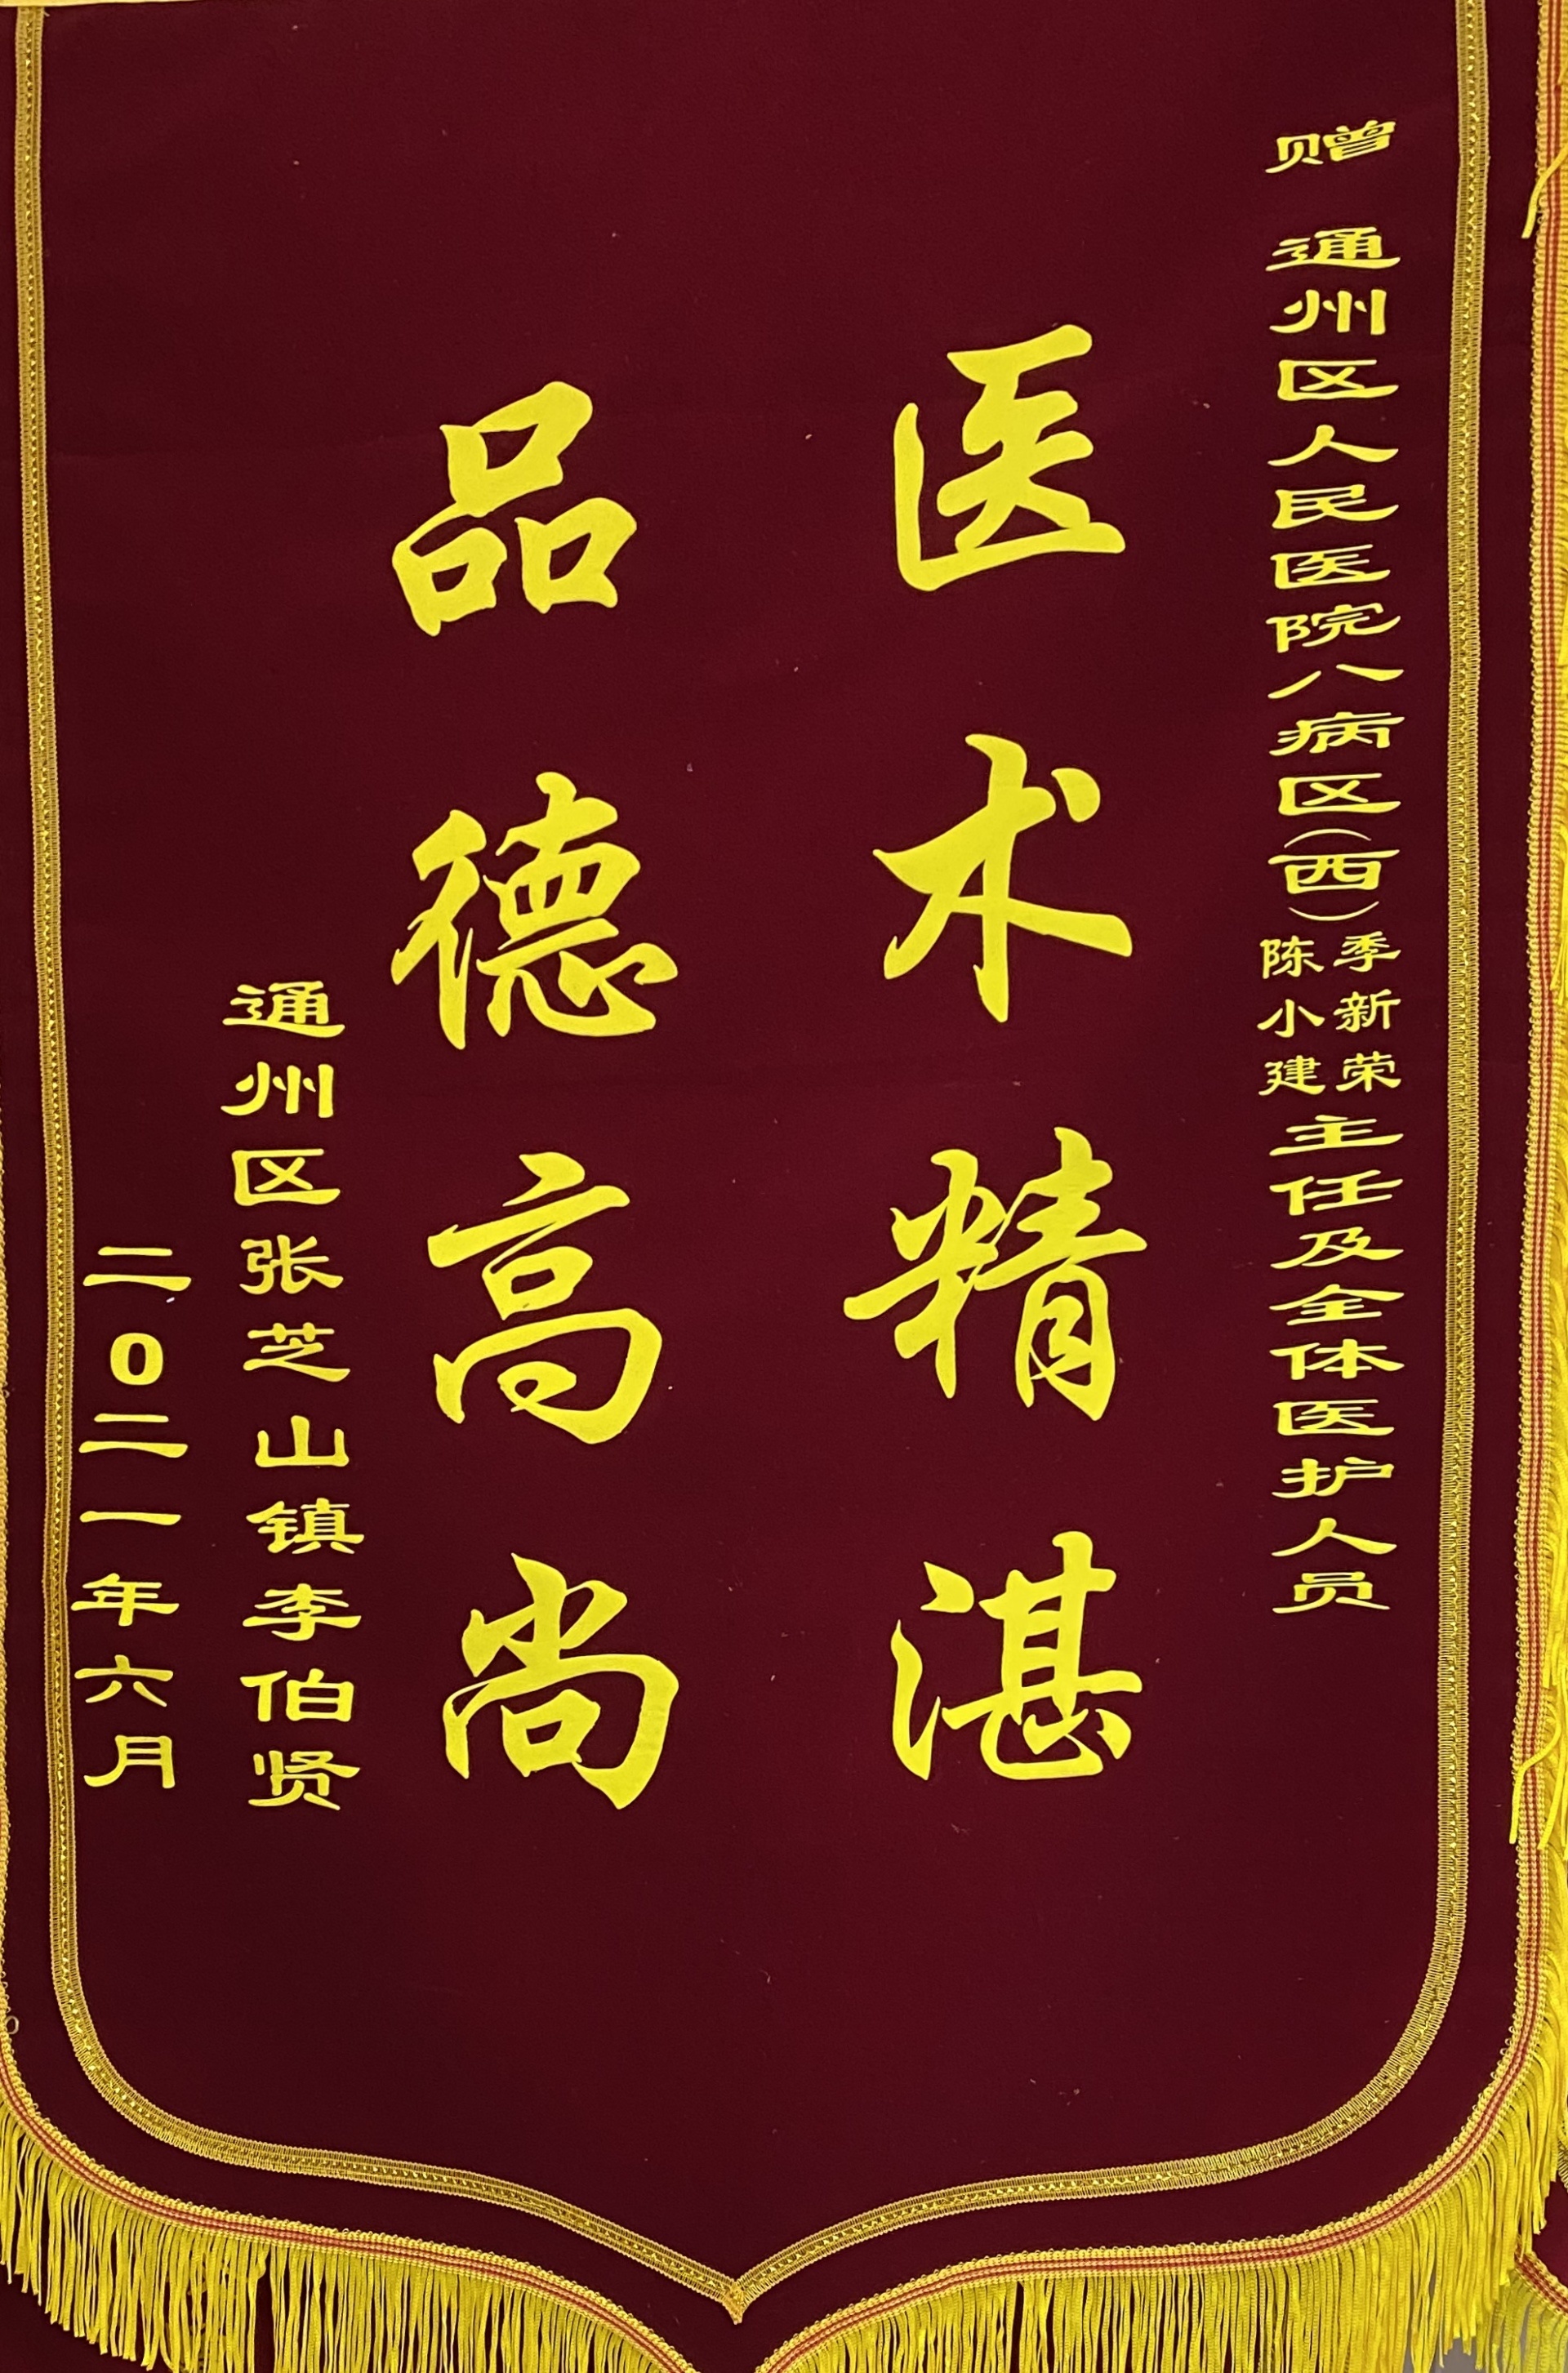 赠 通州区人民医院八病区(西)季新荣陈小建主任及全体医护人员
医术精湛
品德高尚
通州区张芝山镇李伯贤
二0二一年六月